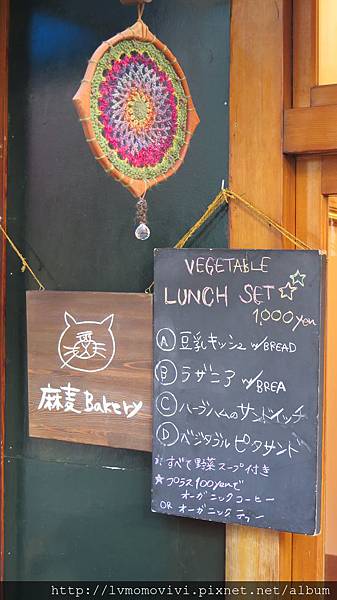 VEGETABLE
LUNCH SET
1,000yen
Ⓐ 豆乳キッシュ w/BREAD
Ⓑ ラザニア w/BREA
Ⓒ ハーブハムのサンドイッチ
Ⓓ ベジタブルピタサンド
※すべて野菜スープ付き
★プラス100yenで
オーガニックコーヒー
OR オーガニックティー
麻麦 Bakery
http://lvmomovivi.pixnet.net/album